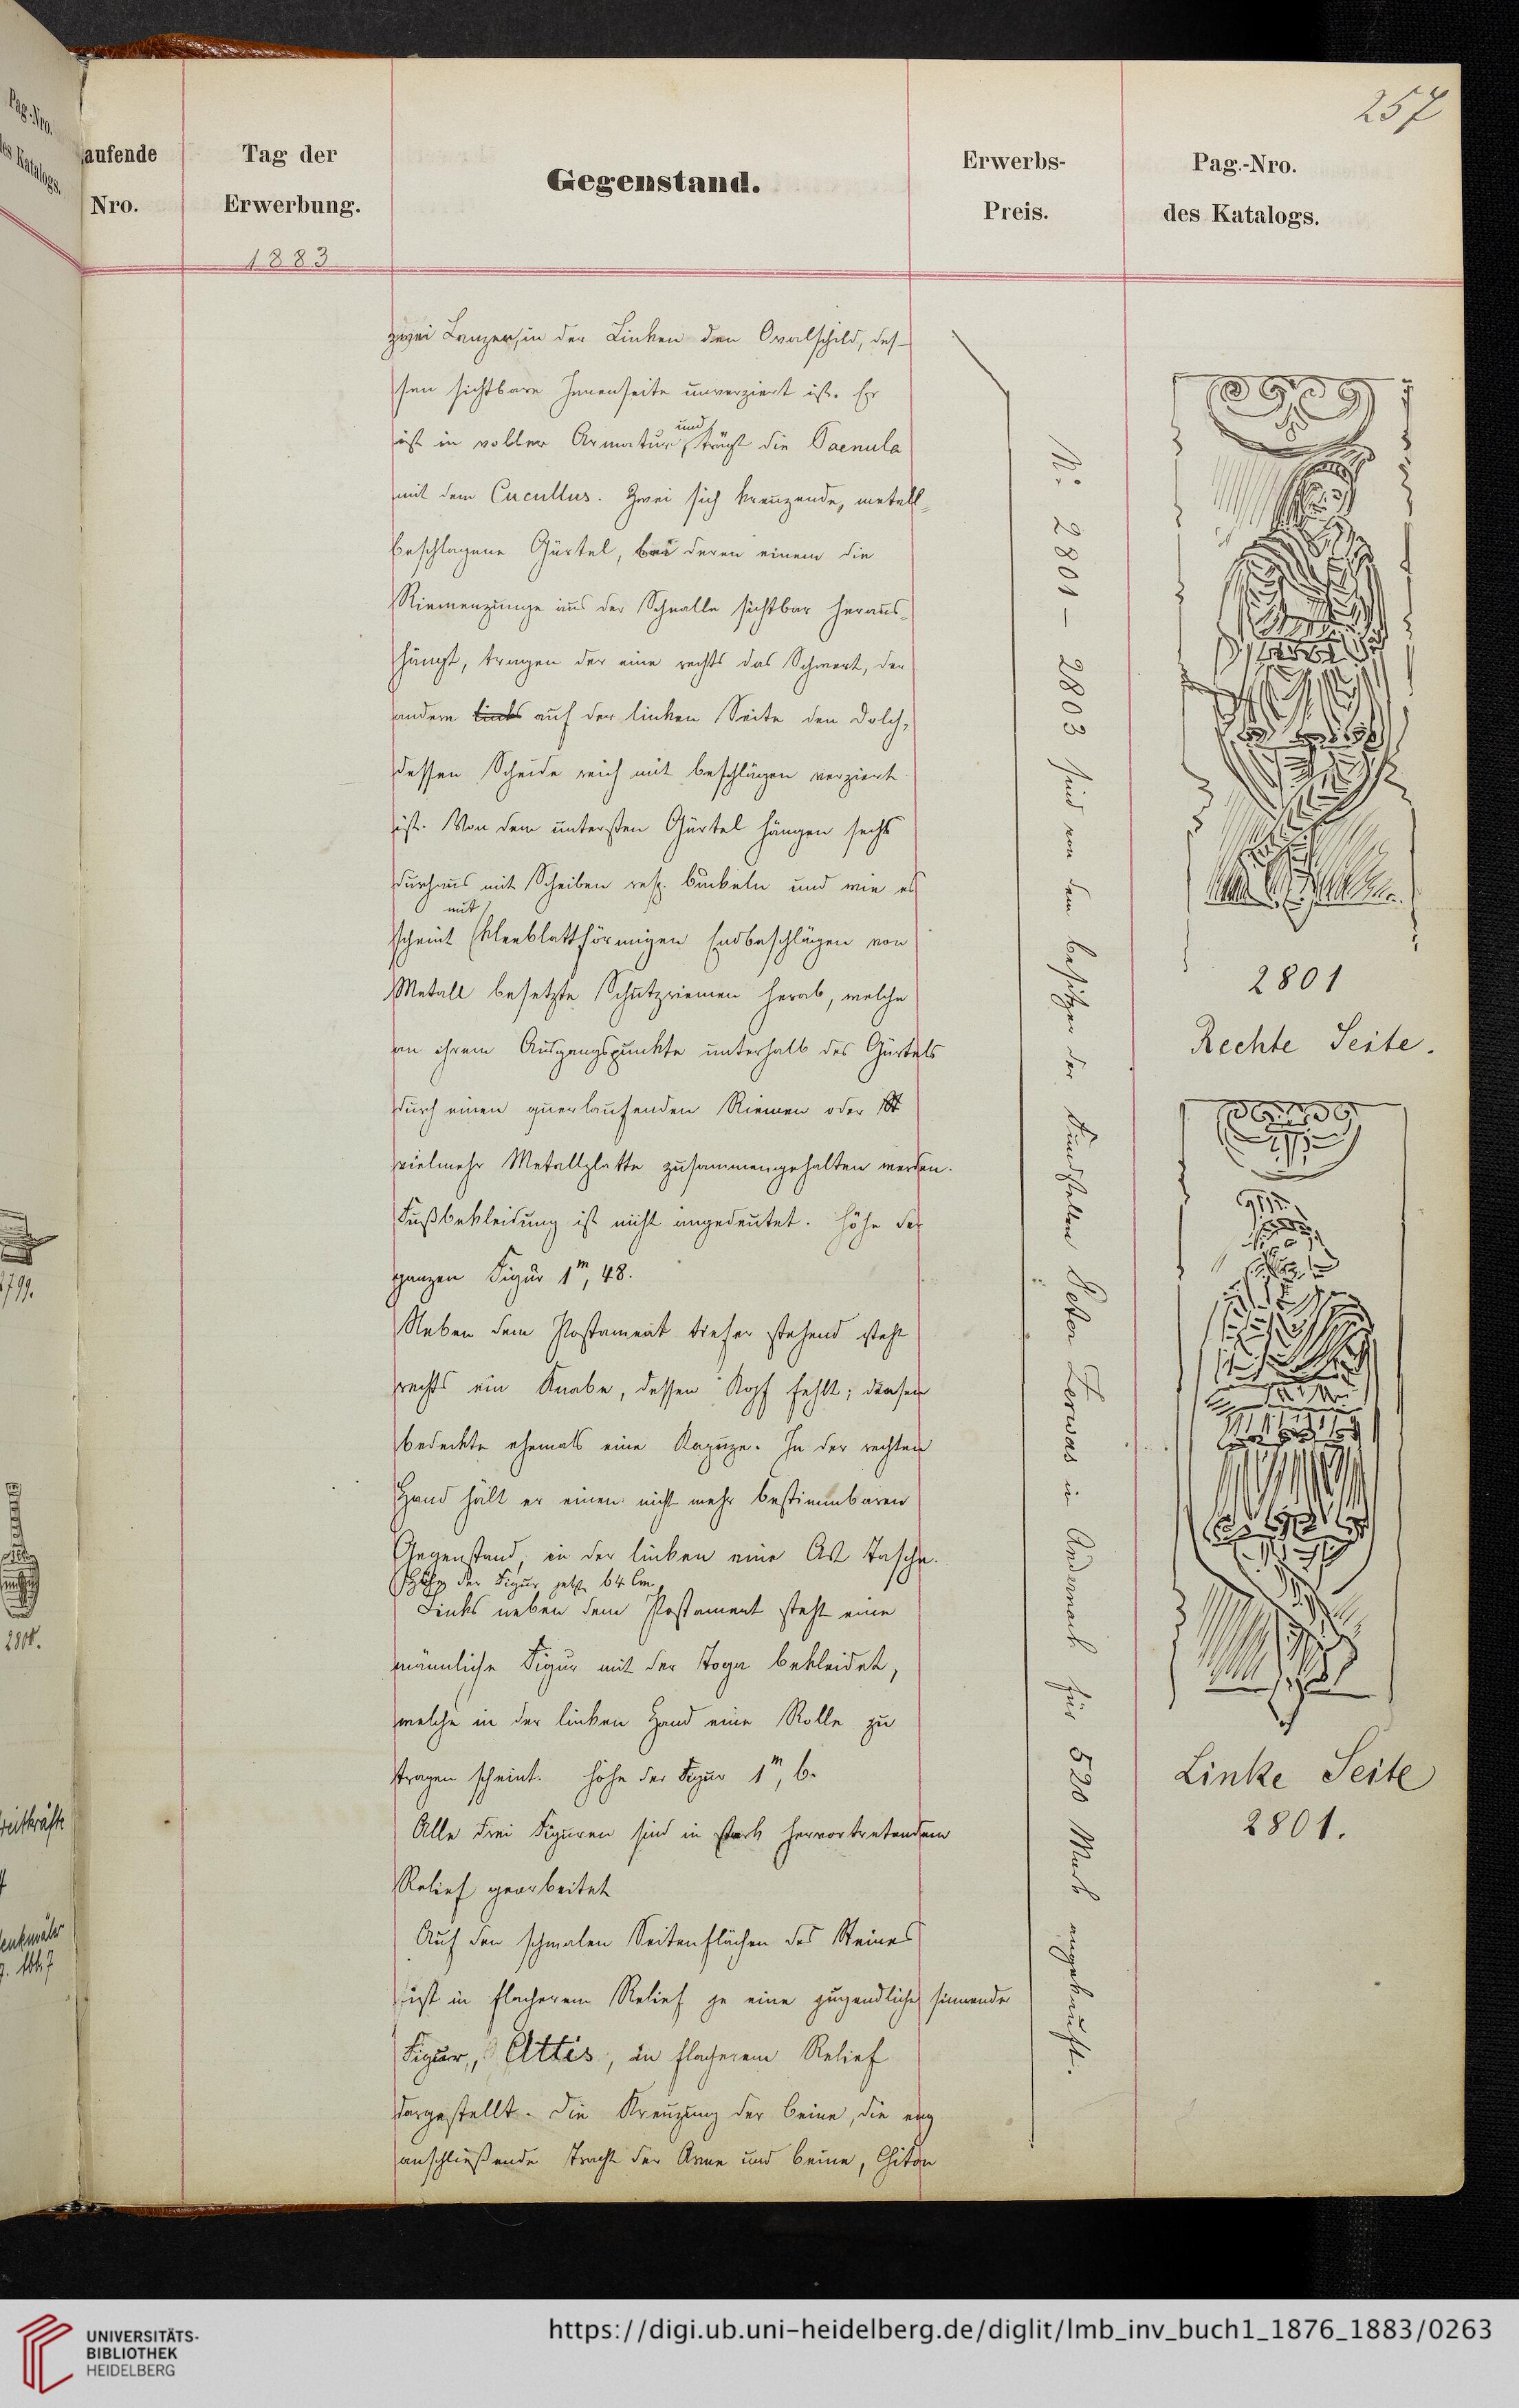 257
Pag.-Nro.
des Katalogs.
aufende
Nro.
Tag der
Erwerbung.
Gegenstand.
Erwerbs-
Preis.
Pag.-Nro.
des Katalogs.
1883
zwei Lanzen, in der Linken den Ovalschild, des-
sen sichtbare Innenseite unverziert ist. Er
ist in voller Armatur, und trägt die Paenula
mit dem Cucullus. Zwei sich kreuzende, metall-
beschlagene Gürtel, bei deren einem die
Riemenzunge aus der Schnalle sichtbar heraus-
hängt, tragen der eine rechts das Schwert, der
andere links auf der linken Seite den Dolch,
dessen Scheide reich mit beschlägen verziert
ist. Von dem untersten Gürtel hängen sechs
durchaus mit Scheiben resp. buckeln und wie es
scheint mit kleeblattförmigen Endbeschlägen von
Metall besetzte Schutzriemen herab, welche
an ihrem Ausgangspunkte unterhalb des Gürtels
durch einen querlaufenden Riemen oder
vielmehr Metallplatte zusammengehalten werden.
Fußbekleidung ist nicht angedeutet. Höhe der
ganzen Figur 1m, 48.
Neben dem Postament tiefer stehend steht
rechts ein Knabe, dessen Kopf fehlt; diesen
bedeckte ehemals eine Kapuze. In der rechten
Hand hält er einen nicht mehr bestimmbaren
Gegenstand, in der linken eine Tasche.
Höhe der Figur jetzt 64 Cm.
Links neben dem Postament steht eine
männliche Figur mit der Toga bekleidet,
welche in der linken Hand eine Rolle zu
tragen scheint. Höhe der Figur 1m, 6.
Alle drei Figuren sind in stark hervortretendem
Relief gearbeitet
Auf den schmalen Seitenflächen des Steines
ist in flacherem Relief je eine jugendliche sinnende
Figur, Attis, in flacherem Relief
dargestellt. Die Kreuzung der beine, die eng
anschließende Tracht der Arme und beine, Chiton
N: 2801 – 2803 sind von dem besitzer der Fundstellen Peter Zerwas in Andernach für 520 Mark angekauft.
2801
Rechte Seite.
Linke Seite
2801.
1799.
UNIVERSITÄTS-
BIBLIOTHEK
HEIDELBERG
https://digi.ub.uni-heidelberg.de/diglit/lmb_inv_buch1_1876_1883/0263